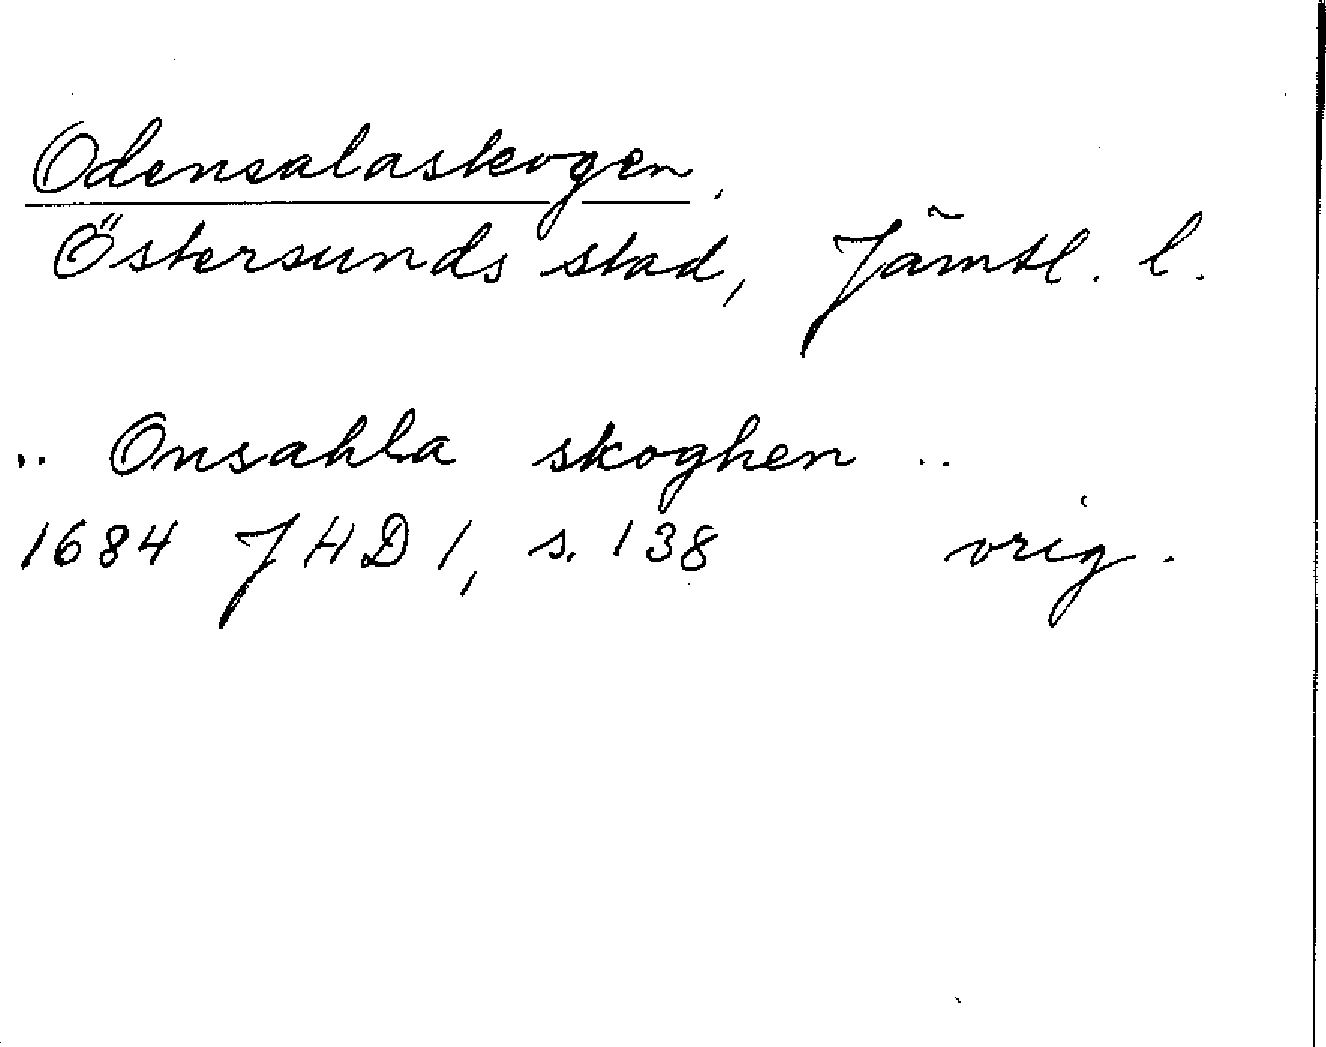 Odensalaskogen.
Östersunds stad, Jämtl. l.
.. Onsahla skoghen ..
1684 JHD 1, s. 138 orig.